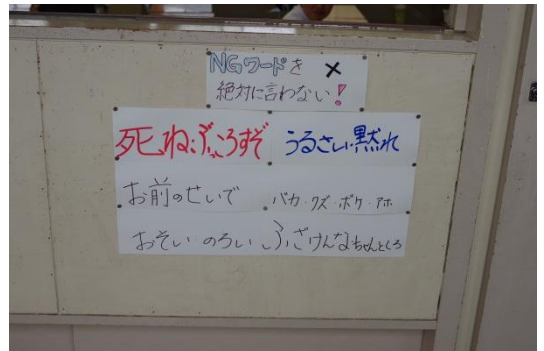 NGワードを ×
絶対に言わない!
死ね・ぶっころすぞ うるさい・黙れ
お前のせいで バカ・クズ・ボケ・アホ
おそい・のろい ふざけんなちゃんとしろ